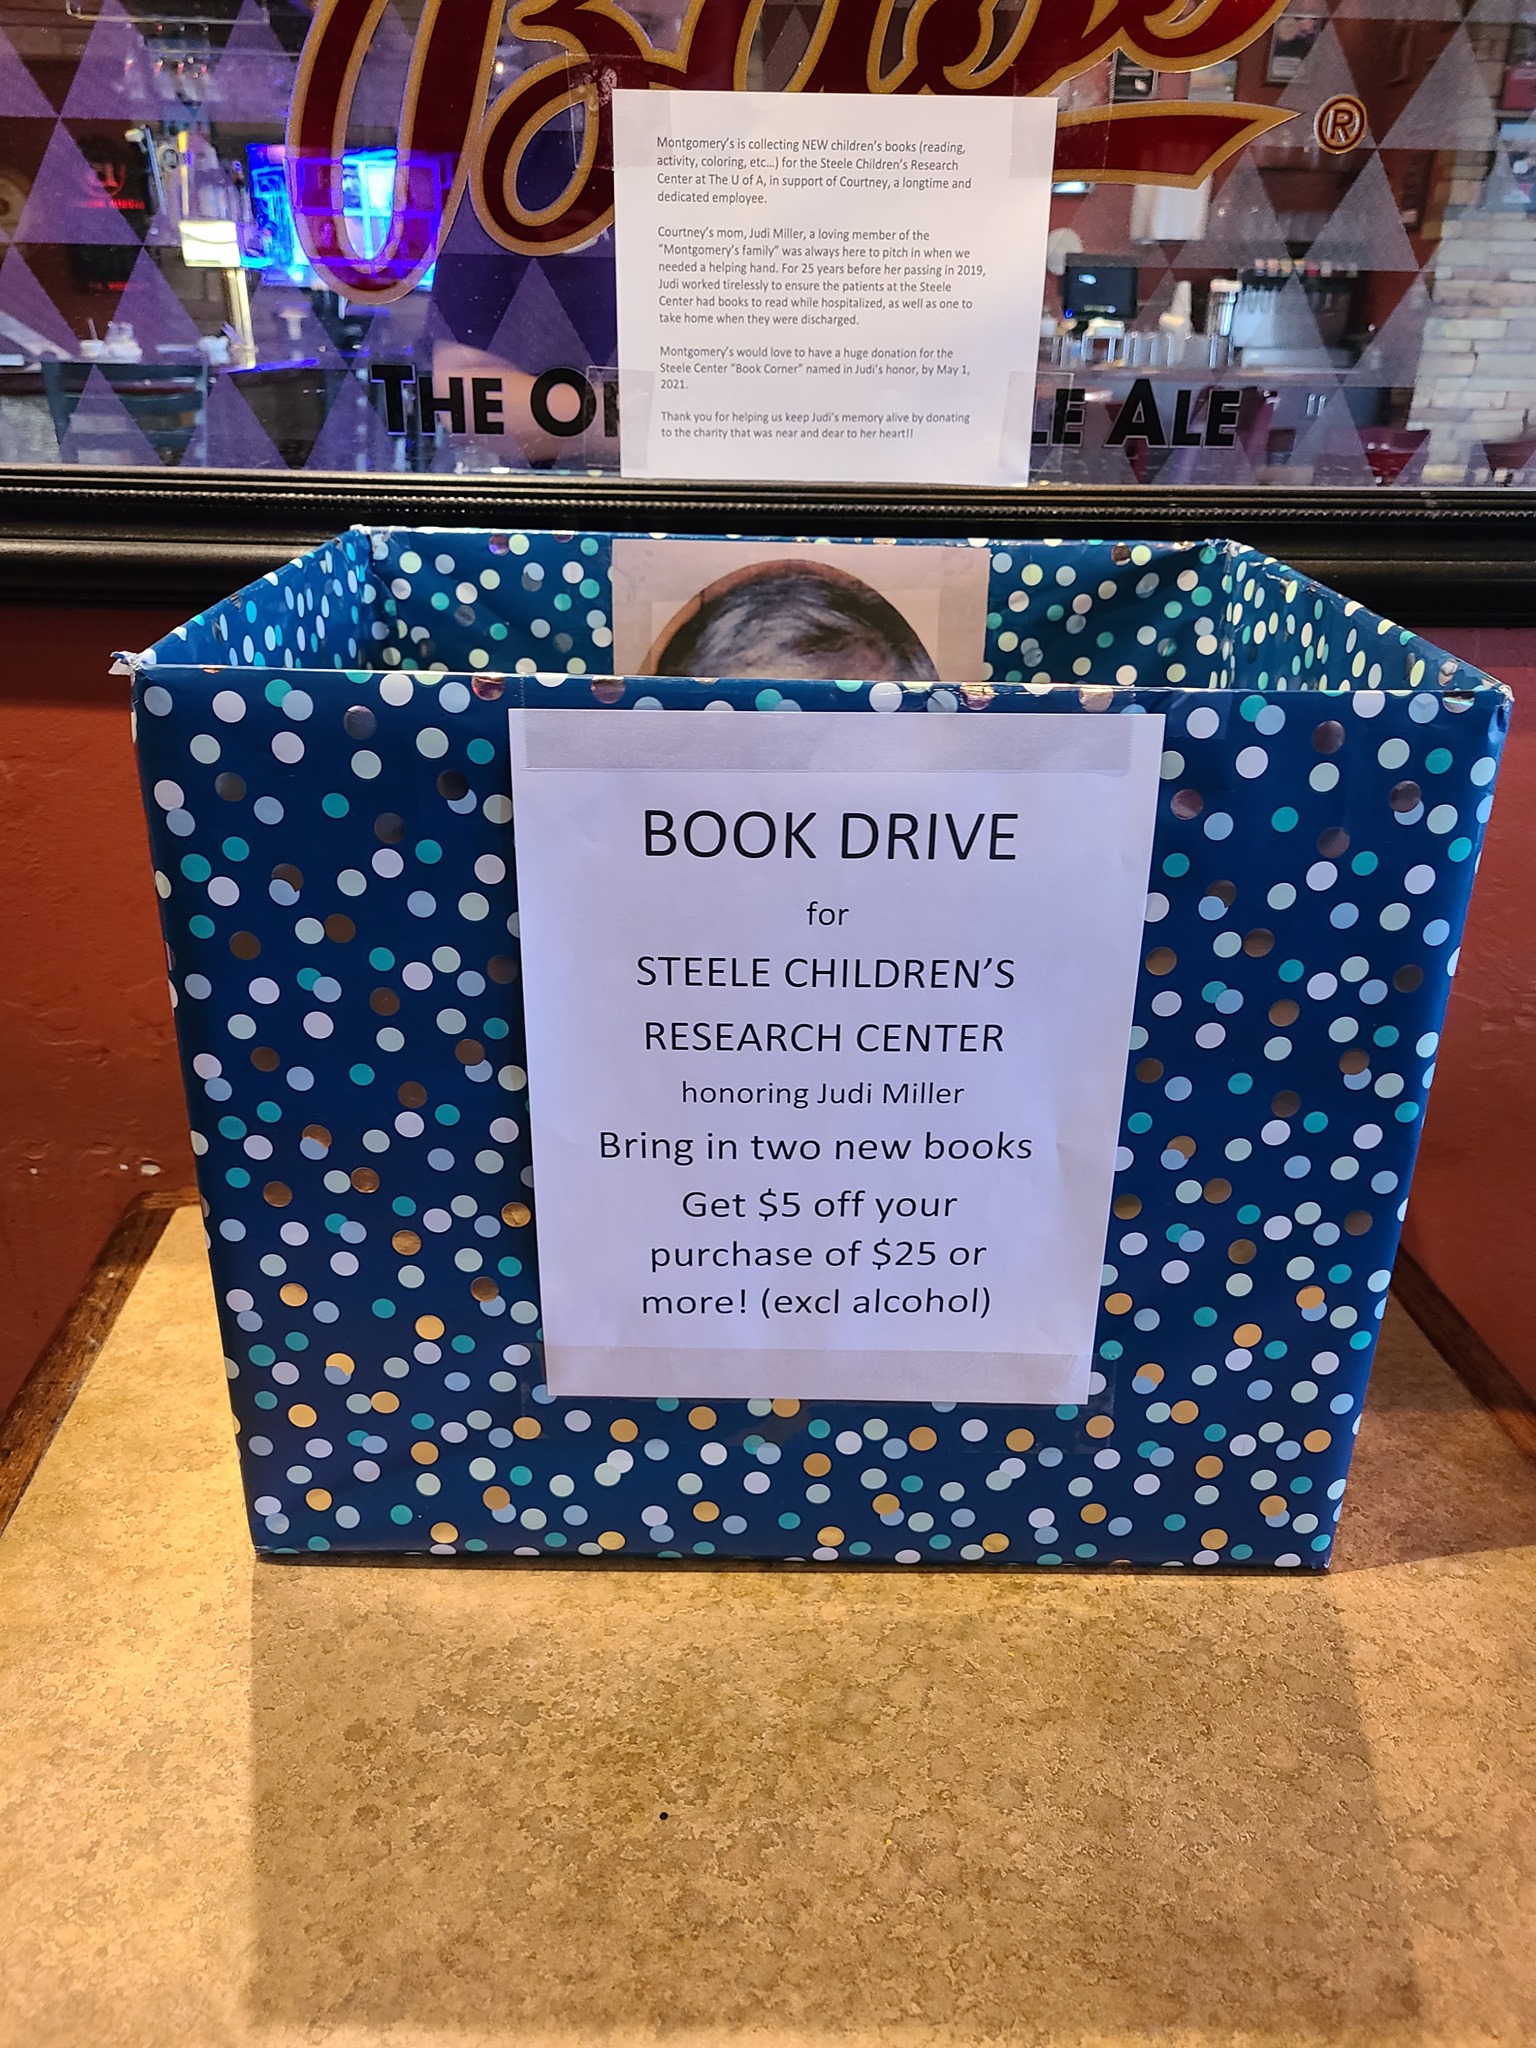 ®
Montgomery's is collecting NEW children's books (reading,
activity, coloring, etc...) for the Steele Children's Research
Center at The U of A, in support of Courtney, a longtime and
dedicated employee.
Courtney's mom, Judi Miller, a loving member of the
"Montgomery's family" was always here to pitch in when we
needed a helping hand. For 25 years before her passing in 2019,
Judi worked tirelessly to ensure the patients at the Steele
Center had books to read while hospitalized, as well as one to
take home when they were discharged.
Montgomery's would love to have a huge donation for the
Steele Center "Book Corner" named in Judi's honor, by May 1,
2021.
Thank you for helping us keep Judi's memory alive by donating
to the charity that was near and dear to her heart!!
THE ALE
BOOK DRIVE
for
STEELE CHILDREN'S
RESEARCH CENTER
honoring Judi Miller
Bring in two new books
Get $5 off your
purchase of $25 or
more! (excl alcohol)